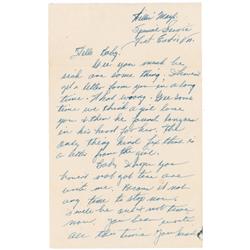 Willie Mays
Special Service
Fort Eustis Va.
Hello Baby,
Gee you must be
sick are some thing. I haven't
got a letter from you in a long
time. What wrong. Gee some
time we think a girl love
you & then he found
in his hand for her. The
only thing hard for him is
a letter from the girl.
Baby I hope you
haven't not got tire are
with me. Because it not
any time to stop now
be not not time
now. You been
all this time you